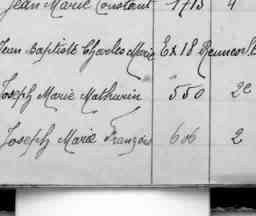 Jean Marie Constant 1715 4
Jean Baptiste Charles Marie Ex 18
Joseph Marie Mathurin 550 2e
Joseph Marie François 606 2